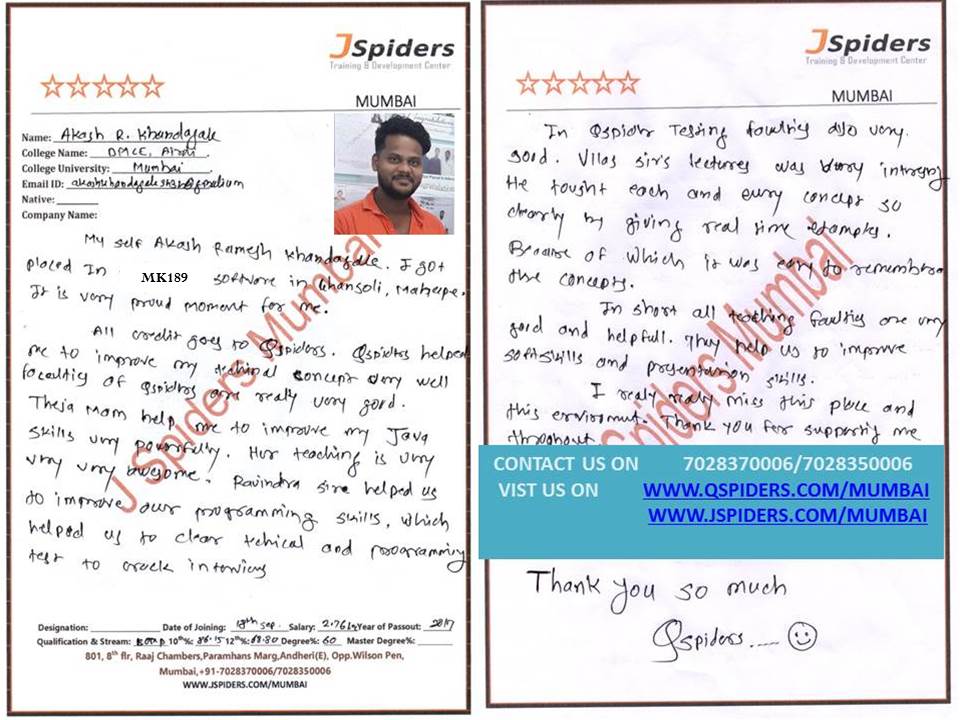 JSpiders
Training & Development Center
MUMBAI
Name: Akash R. Khandagale
College Name: DMCE, Airoli
College University: Mumbai
Email ID:
Native:
Company Name:
My self Akash Ramesh Khandagale. I got
placed In MK189 software in Ghansoli, Mahape.
It is very proud moment for me.
All credit goes to Qspiders. Qspiders helped
me to improve my techinal concept very well
faculties of Qspiders are really very good.
Theja Mam help me to improve my Java
skills very powerfully. Her teaching is very
very very awesome. Ravindra sir helped us
to improve our programming skills, which
helped us to clear tehical and programming
test to crack interviews
Designation: Date of Joining: 18th Sep. Salary: Year of Passout: 2017
Qualification & Stream: 10th%: 86.15 12th%: 68.80 Degree%: 60 Master Degree%:
801, 8th flr, Raaj Chambers,Paramhans Marg,Andheri(E), Opp.Wilson Pen,
Mumbai,+91-7028370006/7028350006
WWW.JSPIDERS.COM/MUMBAI
J Spiders Mumbai
JSpiders
Training & Development Center
MUMBAI
In Qspider Testing faulties also very
good. Vilas sir's lectures was very
He tought each and every concept so
clearly by giving real time examples.
Because of which it was easy to remember
the concepts.
In short all teaching faulties are very
good and helpfull. They help us to improve
softskills and presentation skills.
I realy realy miss this place and
this enviroment. Thank you for supporting me
throughout
Spiders Mumbai
CONTACT US ON 7028370006/7028350006
VIST US ON WWW.QSPIDERS.COM/MUMBAI
WWW.JSPIDERS.COM/MUMBAI
Thank you so much
Qspiders....